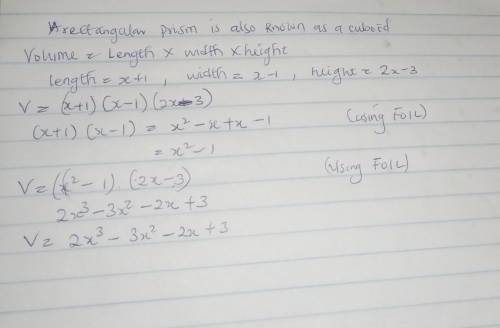 A rectangular prism is also known as a cuboid
Volume = Length × width × height
length = x+1 , width = x-1 , height = 2x-3
V = (x+1)(x-1)(2x-3)
(x+1)(x-1) = x² - x + x - 1 (Using FOIL)
= x² - 1
V = (x² - 1) (2x - 3) (Using FOIL)
2x³ - 3x² - 2x + 3
V = 2x³ - 3x² - 2x + 3